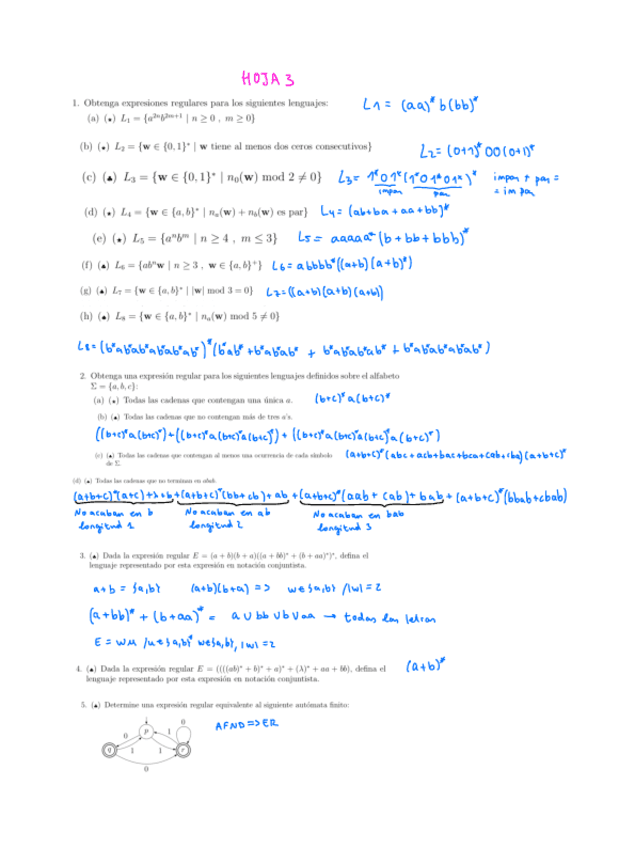 HOJA 3
1. Obtenga expresiones regulares para los siguientes lenguajes:
L1 = (aa)* b(bb)*
(a) (⋆) L₁ = {a²ⁿb²ᵐ⁺¹ | n ≥ 0 , m ≥ 0}
(b) (⋆) L₂ = {w ∈ {0,1}* | w tiene al menos dos ceros consecutivos}
L2 = (0+1)* 00(0+1)*
(c) (♣) L₃ = {w ∈ {0,1}* | n₀(w) mod 2 ≠ 0}
L3 = 1*01*(1*01*01*)* impar + par =
impar par = impar
(d) (⋆) L₄ = {w ∈ {a,b}* | nₐ(w) + n_b(w) es par}
L4 = (ab+ba+aa+bb)*
(e) (⋆) L₅ = {aⁿbᵐ | n ≥ 4 , m ≤ 3}
L5 = aaaaa*(b+bb+bbb)*
(f) (♣) L₆ = {abⁿw | n ≥ 3 , w ∈ {a,b}⁺}
L6 = abbbb*((a+b)(a+b)*)
(g) (♠) L₇ = {w ∈ {a,b}* | |w| mod 3 = 0}
L7 = ((a+b)(a+b)(a+b))
(h) (♠) L₈ = {w ∈ {a,b}* | nₐ(w) mod 5 ≠ 0}
L8 = (b*ab*ab*ab*ab*ab*)*(b*ab* + b*ab*ab* + b*ab*ab*ab* + b*ab*ab*ab*ab*)
2. Obtenga una expresión regular para los siguientes lenguajes definidos sobre el alfabeto
Σ = {a, b, c}:
(a) (⋆) Todas las cadenas que contengan una única a.
(b+c)* a(b+c)*
(b) (♠) Todas las cadenas que no contengan más de tres a's.
((b+c)*a(b+c)*)+((b+c)*a(b+c)*a(b+c)*)+((b+c)*a(b+c)*a(b+c)*a(b+c)*)
(c) (♠) Todas las cadenas que contengan al menos una ocurrencia de cada símbolo
de Σ.
(a+b+c)*(abc+acb+bac+bca+cab+cba)(a+b+c)*
(d) (♠) Todas las cadenas que no terminan en abab.
(a+b+c)*(a+c)+λ+b+(a+b+c)*(bb+cb)+ab+(a+b+c)*(aab+cab)+bab+(a+b+c)*(bbab+cbab)
No acaban en b No acaban en ab No acaban en bab
longitud 1 longitud 2 longitud 3
3. (♠) Dada la expresión regular E = (a + b)(b + a)((a + bb)* + (b + aa)*)*, defina el
lenguaje representado por esta expresión en notación conjuntista.
a+b = {a,b} (a+b)(b+a) => w∈{a,b} /|w|=2
(a+bb)* + (b+aa)* = a∪bb∪b∪aa → todas las letras
E = wu /u∈{a,b}* w∈{a,b}, |w|=2
4. (♠) Dada la expresión regular E = ((((ab)* + b)* + a)* + (λ)* + aa + bb), defina el
lenguaje representado por esta expresión en notación conjuntista.
(a+b)*
5. (♠) Determine una expresión regular equivalente al siguiente autómata finito:
AFND=>ER
p 0
0 1
q 1 1 r
0